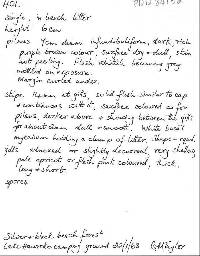 H01.
single, in beach litter
height 60cm
pileus 70mm diam infundibuliform, dark, rich
purple brown colour, surface dry + dull, skin
not peeling. Flesh whitish becoming grey
mottled on exposure.
Margin curled under.
stipe. 14mm at gills, solid flesh similar to cap
+ continuous with it, surface coloured as for
pileus, darker above + showing between the gill
at dull + smooth. White basal
mycelium holding a clump of litter. shape equal.
gills adnexed or slightly decurrent, very shallow
pale apricot or flesh pink coloured, thick,
long + short
spores
Silver + black beech forest
Lake Hauroko camping ground 20/1/83